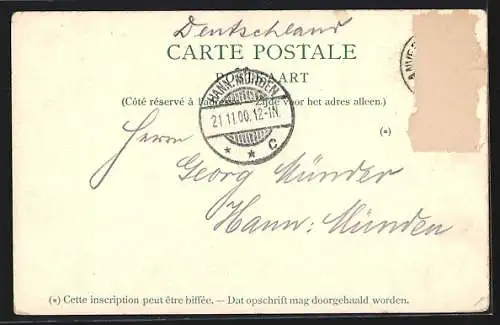 Deutschland
CARTE POSTALE
POSTKAART
(Côté réservé à l'adresse. — Zijde voor het adres alleen.)
ANVE
HANN. MÜNDEN
21.11.00.12-1N.
* * C
(*)
Herrn
Georg Münder
Hann: Münden
(*) Cette inscription peut être biffée. — Dat opschrift mag doorgehaald worden.